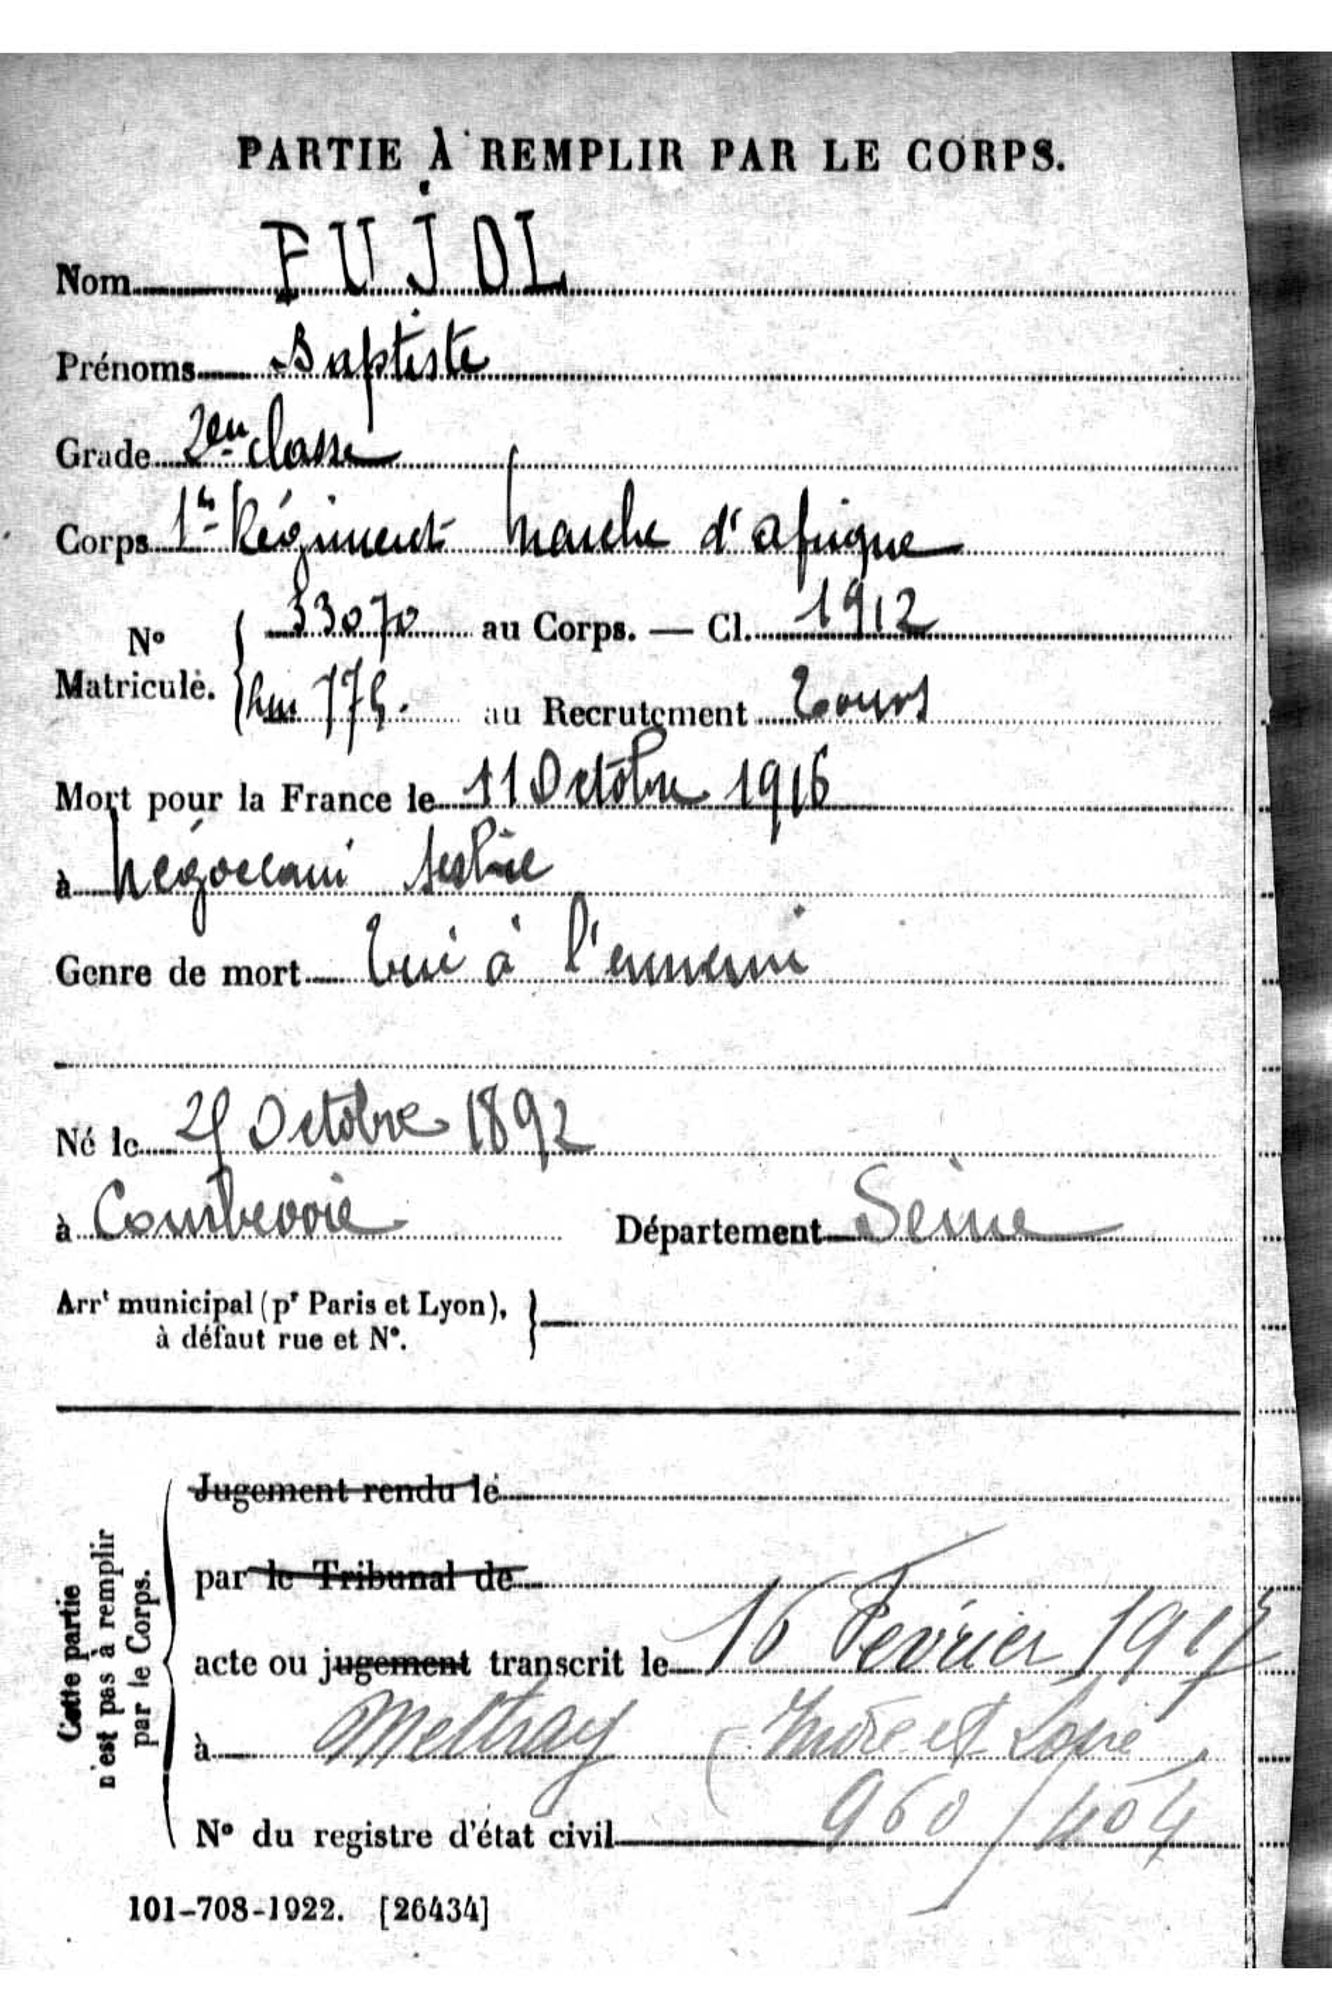 PARTIE À REMPLIR PAR LE CORPS.
Nom PUJOL
Prénoms Baptiste
Grade 2e classe
Corps 1er Régiment Marche d'Afrique
No Matricule. 33070 au Corps. — Cl. 1912
775. au Recrutement Tours
Mort pour la France le 11 Octobre 1916
à Négocani Serbie
Genre de mort Tué à l'ennemi
Né le Octobre 1892
à Courbevoie Département Seine
Arrt municipal (pr Paris et Lyon),
à défaut rue et No.
Cette partie
n'est pas à remplir
par le Corps.
Jugement rendu le
par le Tribunal de
acte ou jugement transcrit le 16 Février 1917
à Mettray (Indre et Loire
No du registre d'état civil 960/404
101-708-1922. [26434]